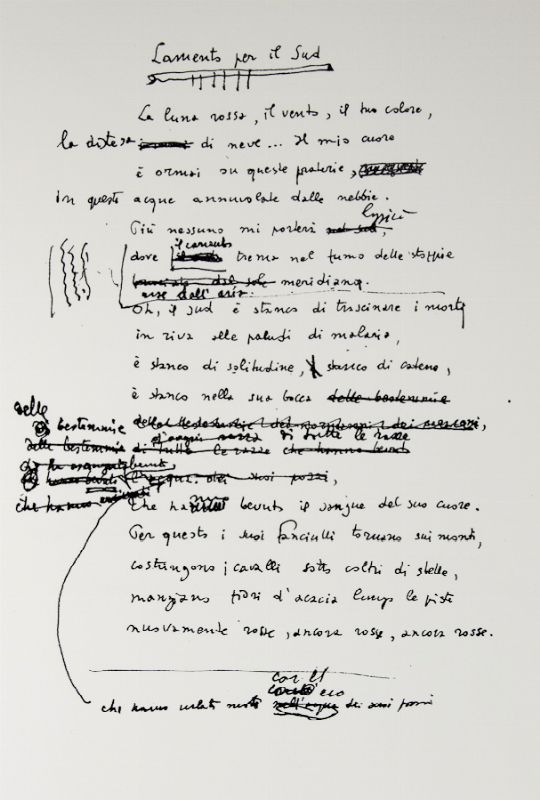 Lamento per il Sud
La luna rossa, il vento, il tuo colore,
la distesa di neve... Il mio cuore
è ormai su queste praterie,
in queste acque annuvolate dalle nebbie.
Più nessuno mi porterà nel sud,
laggiù
il carrubo
dove trema nel fumo delle stoppie
bruciate dal sole meridiana.
arse dall'aria
Oh, il Sud è stanco di trascinare i morti
in riva alle paludi di malaria,
è stanco di solitudine, stanco di catene,
è stanco nella sua bocca delle bestemmie
delle
bestemmie
d'ogni razza di tutte le razze
delle bestemmie di tutte le razze che hanno
l'acqua dei suoi pozzi,
che hanno
che hanno bevuto il sangue del suo cuore.
Per questo i suoi fanciulli tornano sui monti,
costringono i cavalli sotto coltri di stelle,
mangiano fiori d'acacia lungo le piste
nuovamente rosse, ancora rosse, ancora rosse.
con l'eco
che hanno urlato morte nell'acqua dei suoi pozzi